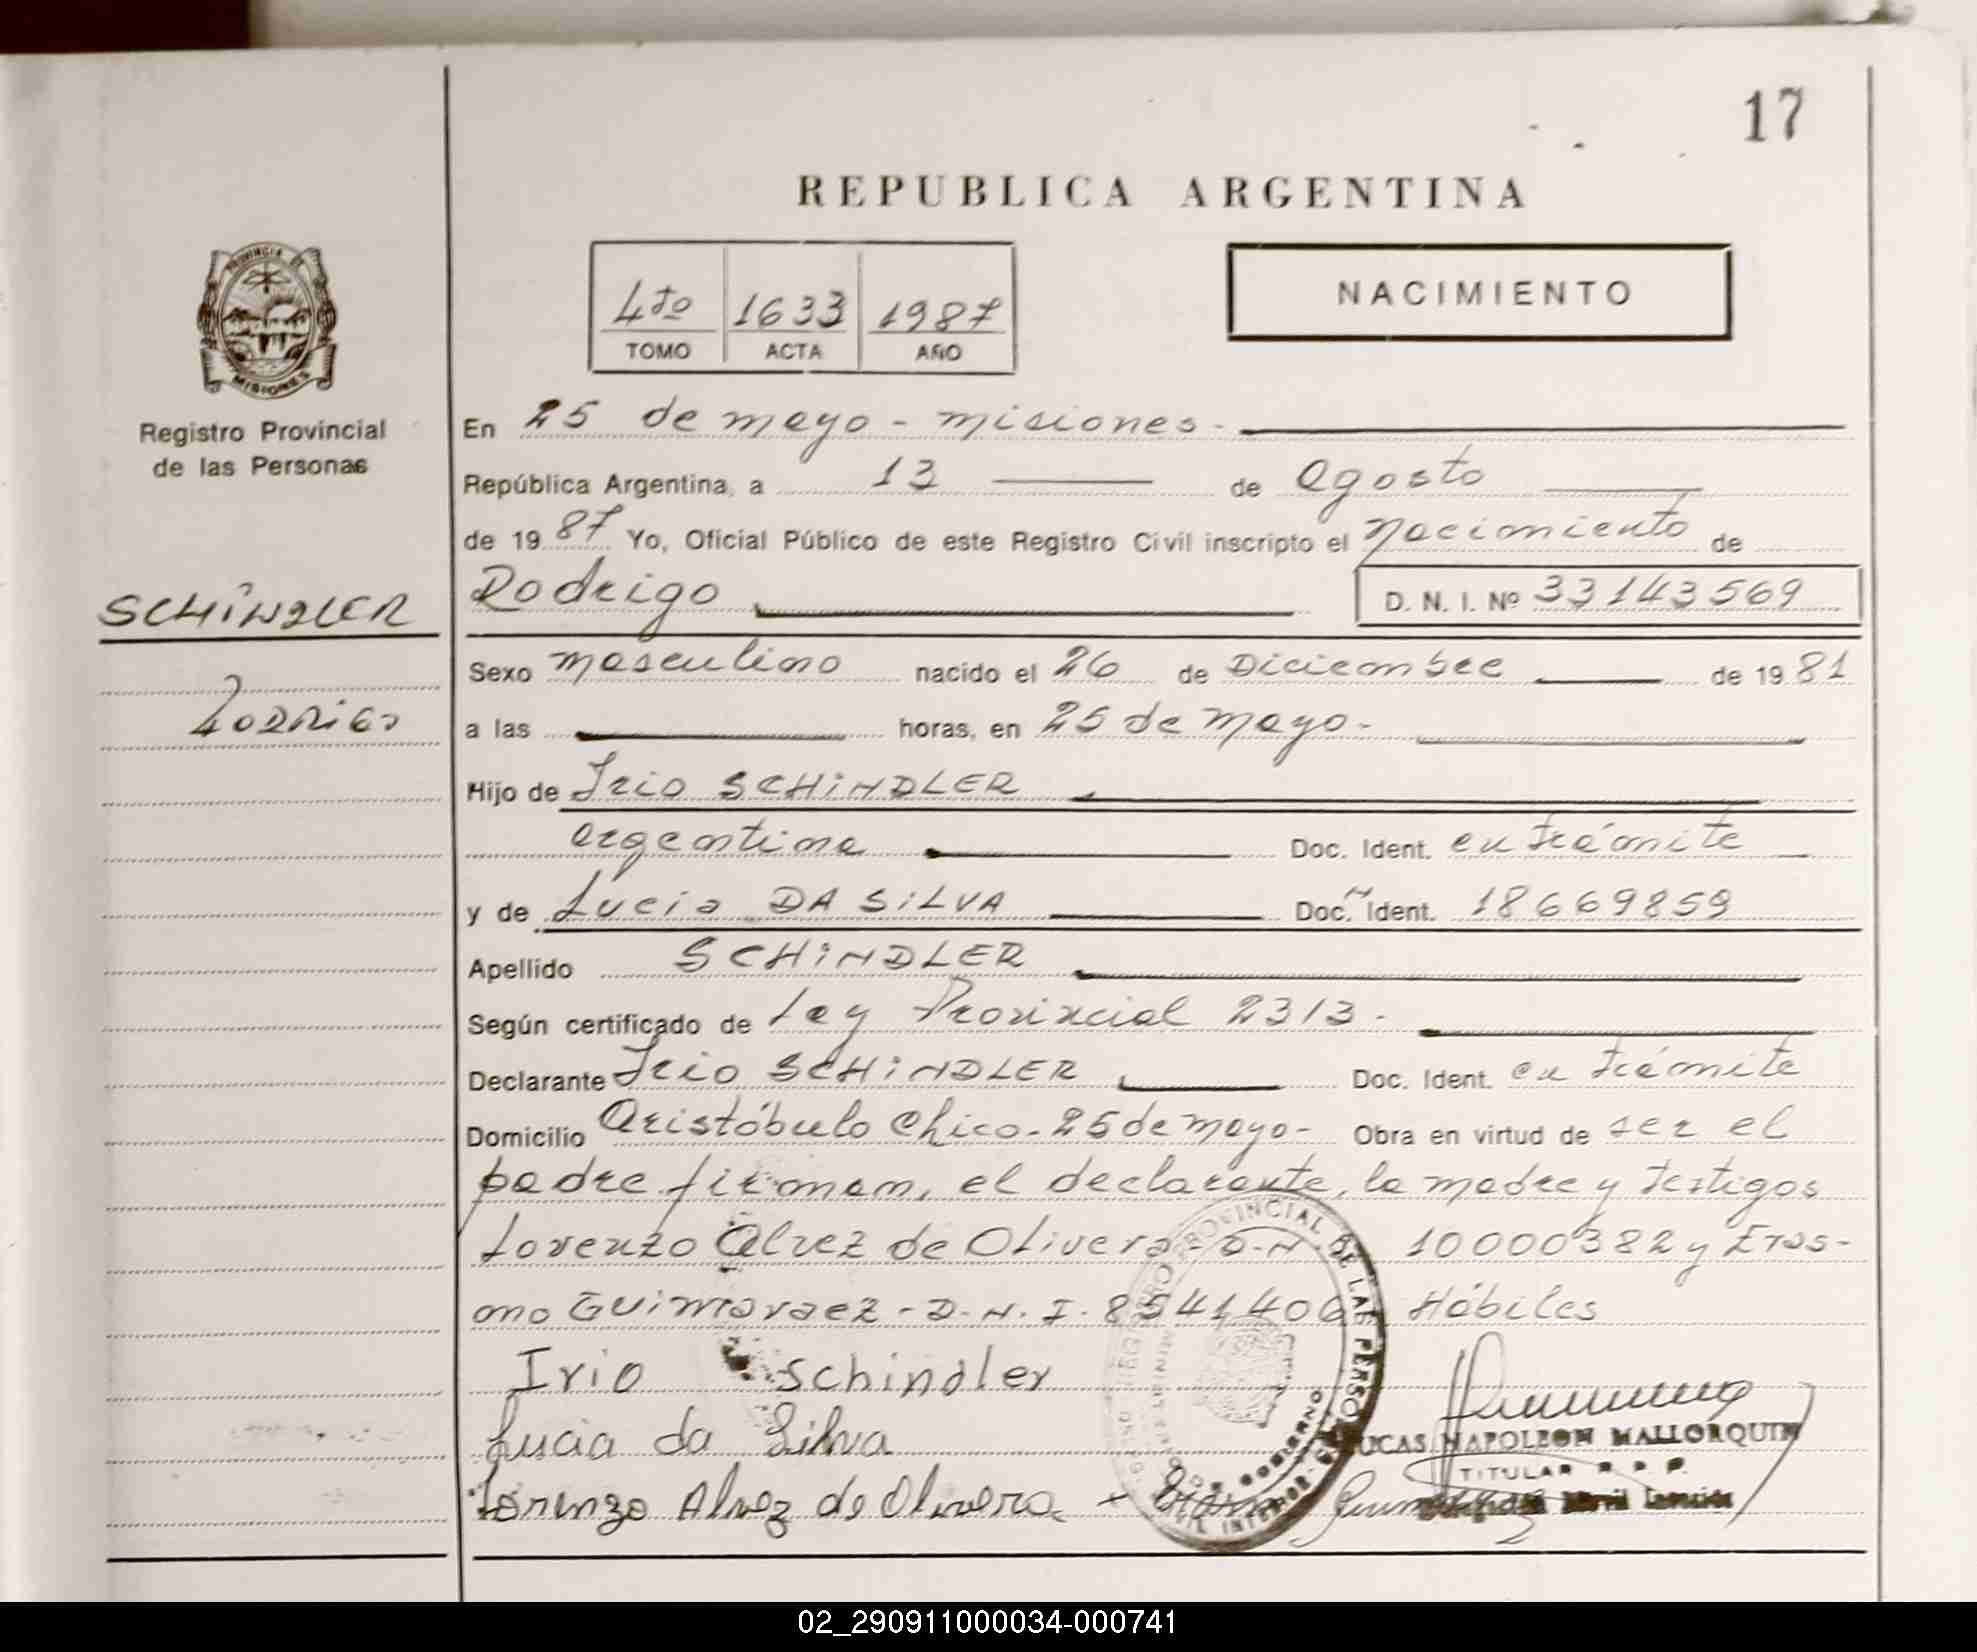 17
REPUBLICA ARGENTINA
4to 1633 1987
TOMO ACTA AÑO
NACIMIENTO
PROVINCIA DE
MISIONES
Registro Provincial
de las Personas
SCHiNDLER
RODRiGO
En 25 de mayo - misiones -
República Argentina, a 13 de agosto
de 19 87 Yo, Oficial Público de este Registro Civil inscripto el nacimiento de
Rodrigo D. N. I. Nº 33143569
Sexo masculino nacido el 26 de Diciembre de 19 81
a las horas, en 25 de mayo-
Hijo de Irio SCHiNDLER
argentina Doc. Ident. en trámite
y de Lucia DA SiLVA Doc. Ident. 18669859
Apellido SCHiNDLER
Según certificado de Ley Provincial 2313 -
Declarante Irio SCHiNDLER Doc. Ident. en trámite
Domicilio Aristóbulo Chico - 25 de mayo - Obra en virtud de ser el
padre firman, el declarante, la madre y testigos
Lorenzo Alvez de Olivera - D.N. 10000382 y Eras-
mo Guimaraez - D.N.I. 8541406 Hábiles
Irio Schindler
Lucia da Silva
Lorenzo Alvez de Olivera
LUCAS NAPOLEON MALLORQUIN
TITULAR R. P. P.
02_290911000034-000741